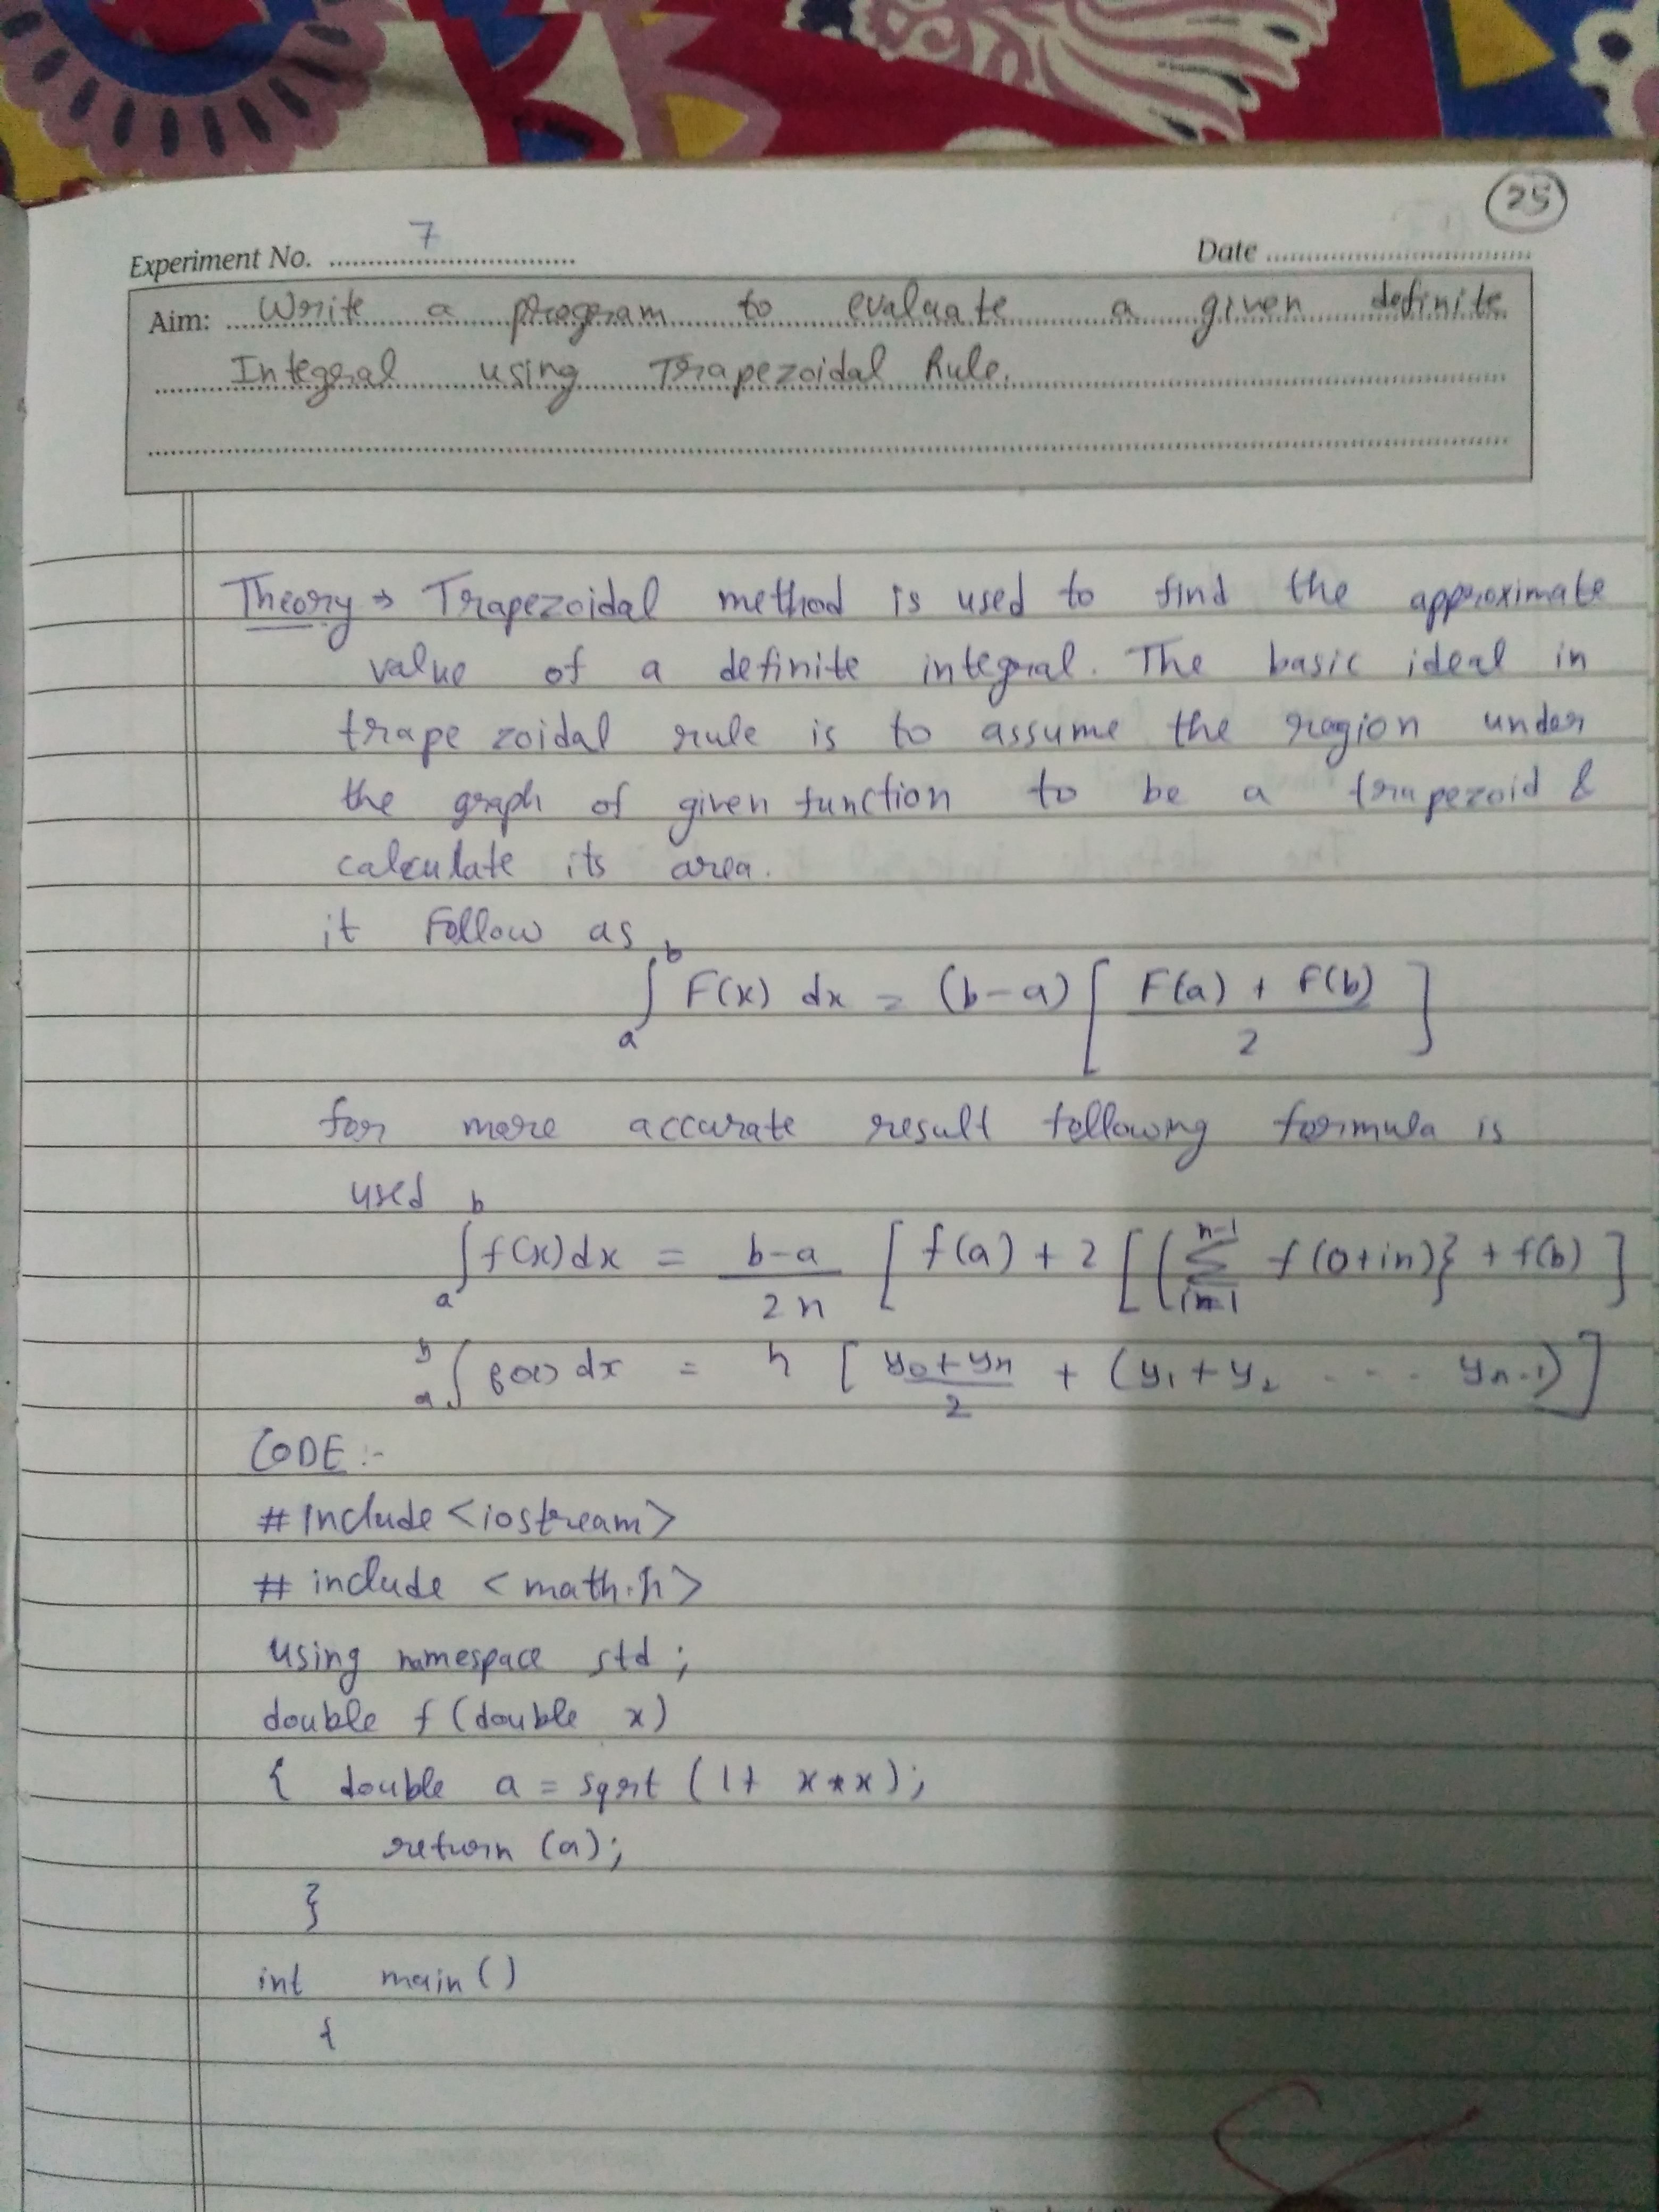 25
Experiment No. 7 Date
Aim: Write a program to evaluate a given definite
Integral using Trapezoidal Rule.
Theory → Trapezoidal method is used to find the approximate
value of a definite integral. The basic ideal in
trape zoidal rule is to assume the region under
the graph of given function to be a trapezoid &
calculate its area.
it Follow as
∫_a^b F(x) dx = (b-a) [ (F(a) + F(b)) / 2 ]
for more accurate result following formula is
used
∫_a^b f(x) dx = (b-a) / 2n [ f(a) + 2 [ ( Σ_{i=1}^{n-1} f(0+in) } + f(b) ]
∫_a^b f(x) dx = h [ (y0+yn) / 2 + (y1+y2 . . . yn-1) ]
CODE :-
# Include <iostream>
# include <math.h>
using namespace std ;
double f (double x)
{ double a = sqrt (1+ x*x);
return (a);
}
int main ()
{